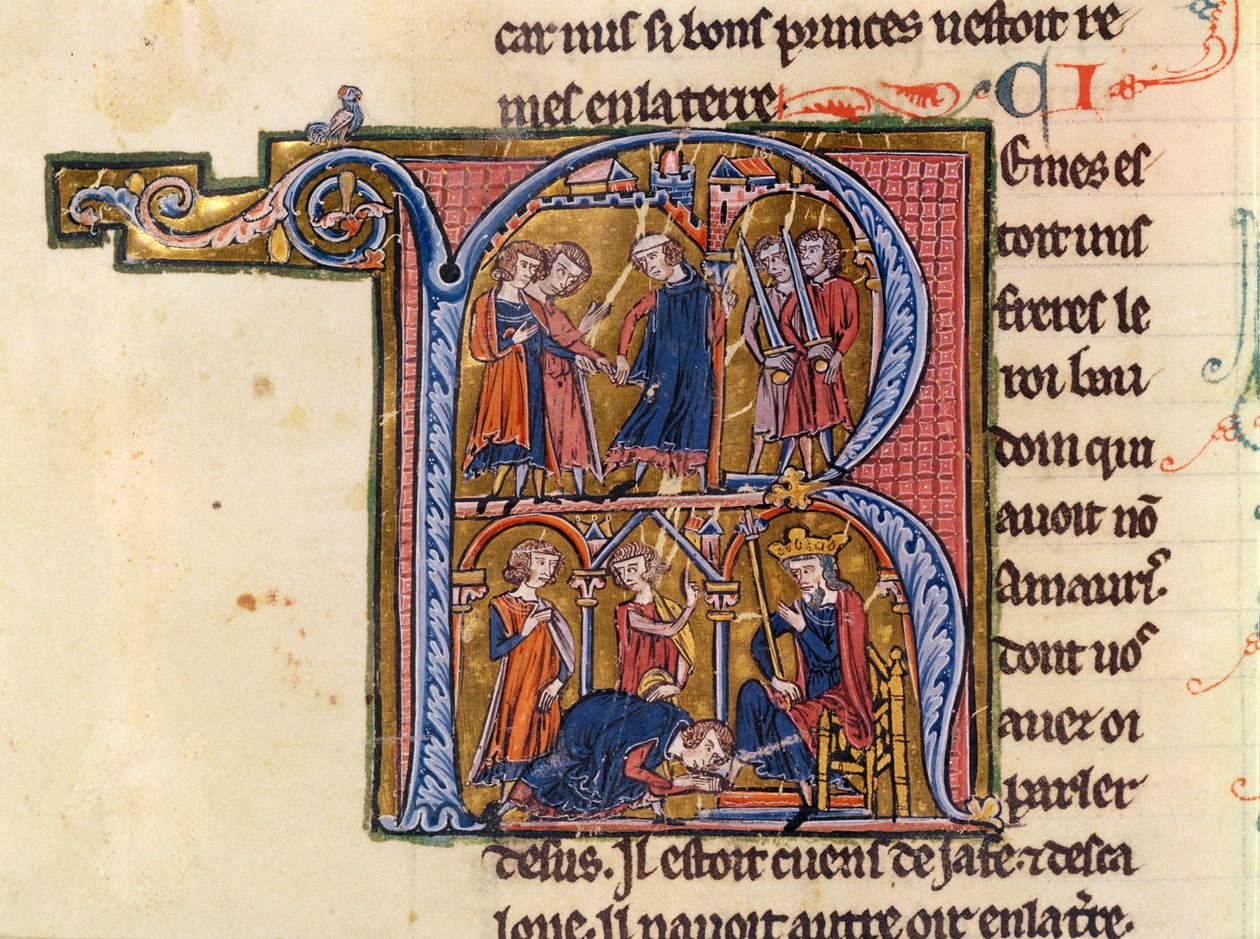 car nus si bons princes nestoit re
mes en la terre. C I
R
Emes es
toit uns
freres le
roi bau
doin qui
avoit nō
Amauri.
dont vos
avez oi
parler
desus. Il estoit cuens de Jafe. ⁊ desca
lone. Il navoit autre oir en la tre.